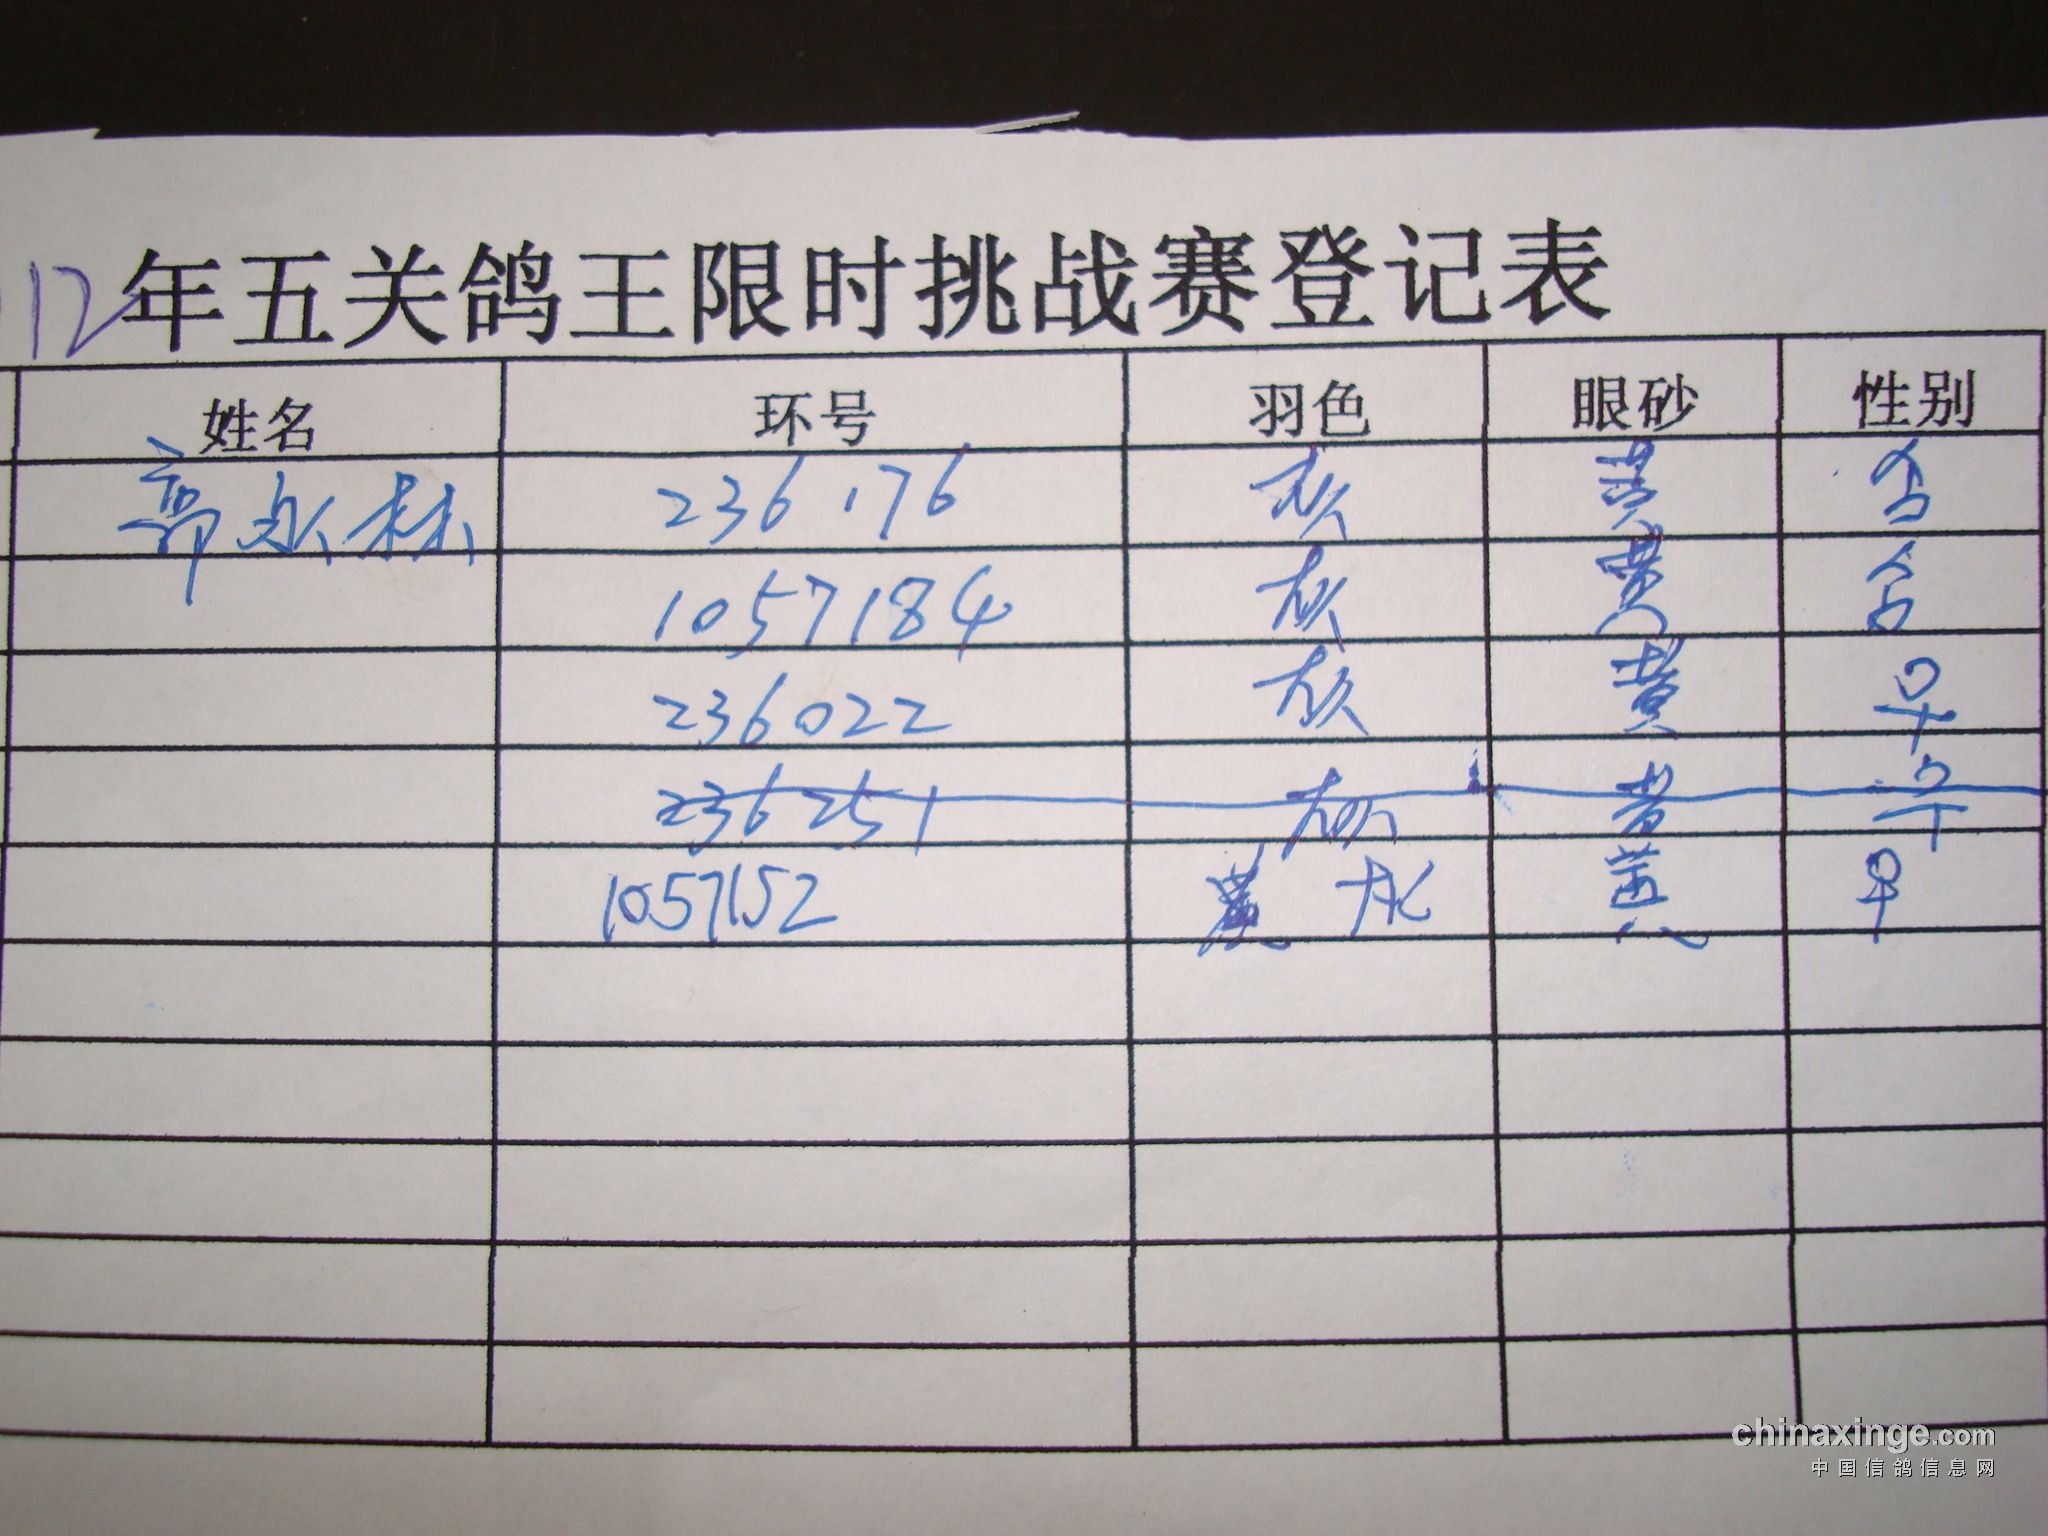 12年五关鸽王限时挑战赛登记表
姓名 环号 羽色 眼砂 性别
郭永林 236176 灰 黄 ♂
1057184 灰 黄 ♂
236022 灰 黄 ♀
236251 灰 黄 ♀
1057152 灰 黄 ♀
chinaxinge.com
中国信鸽信息网